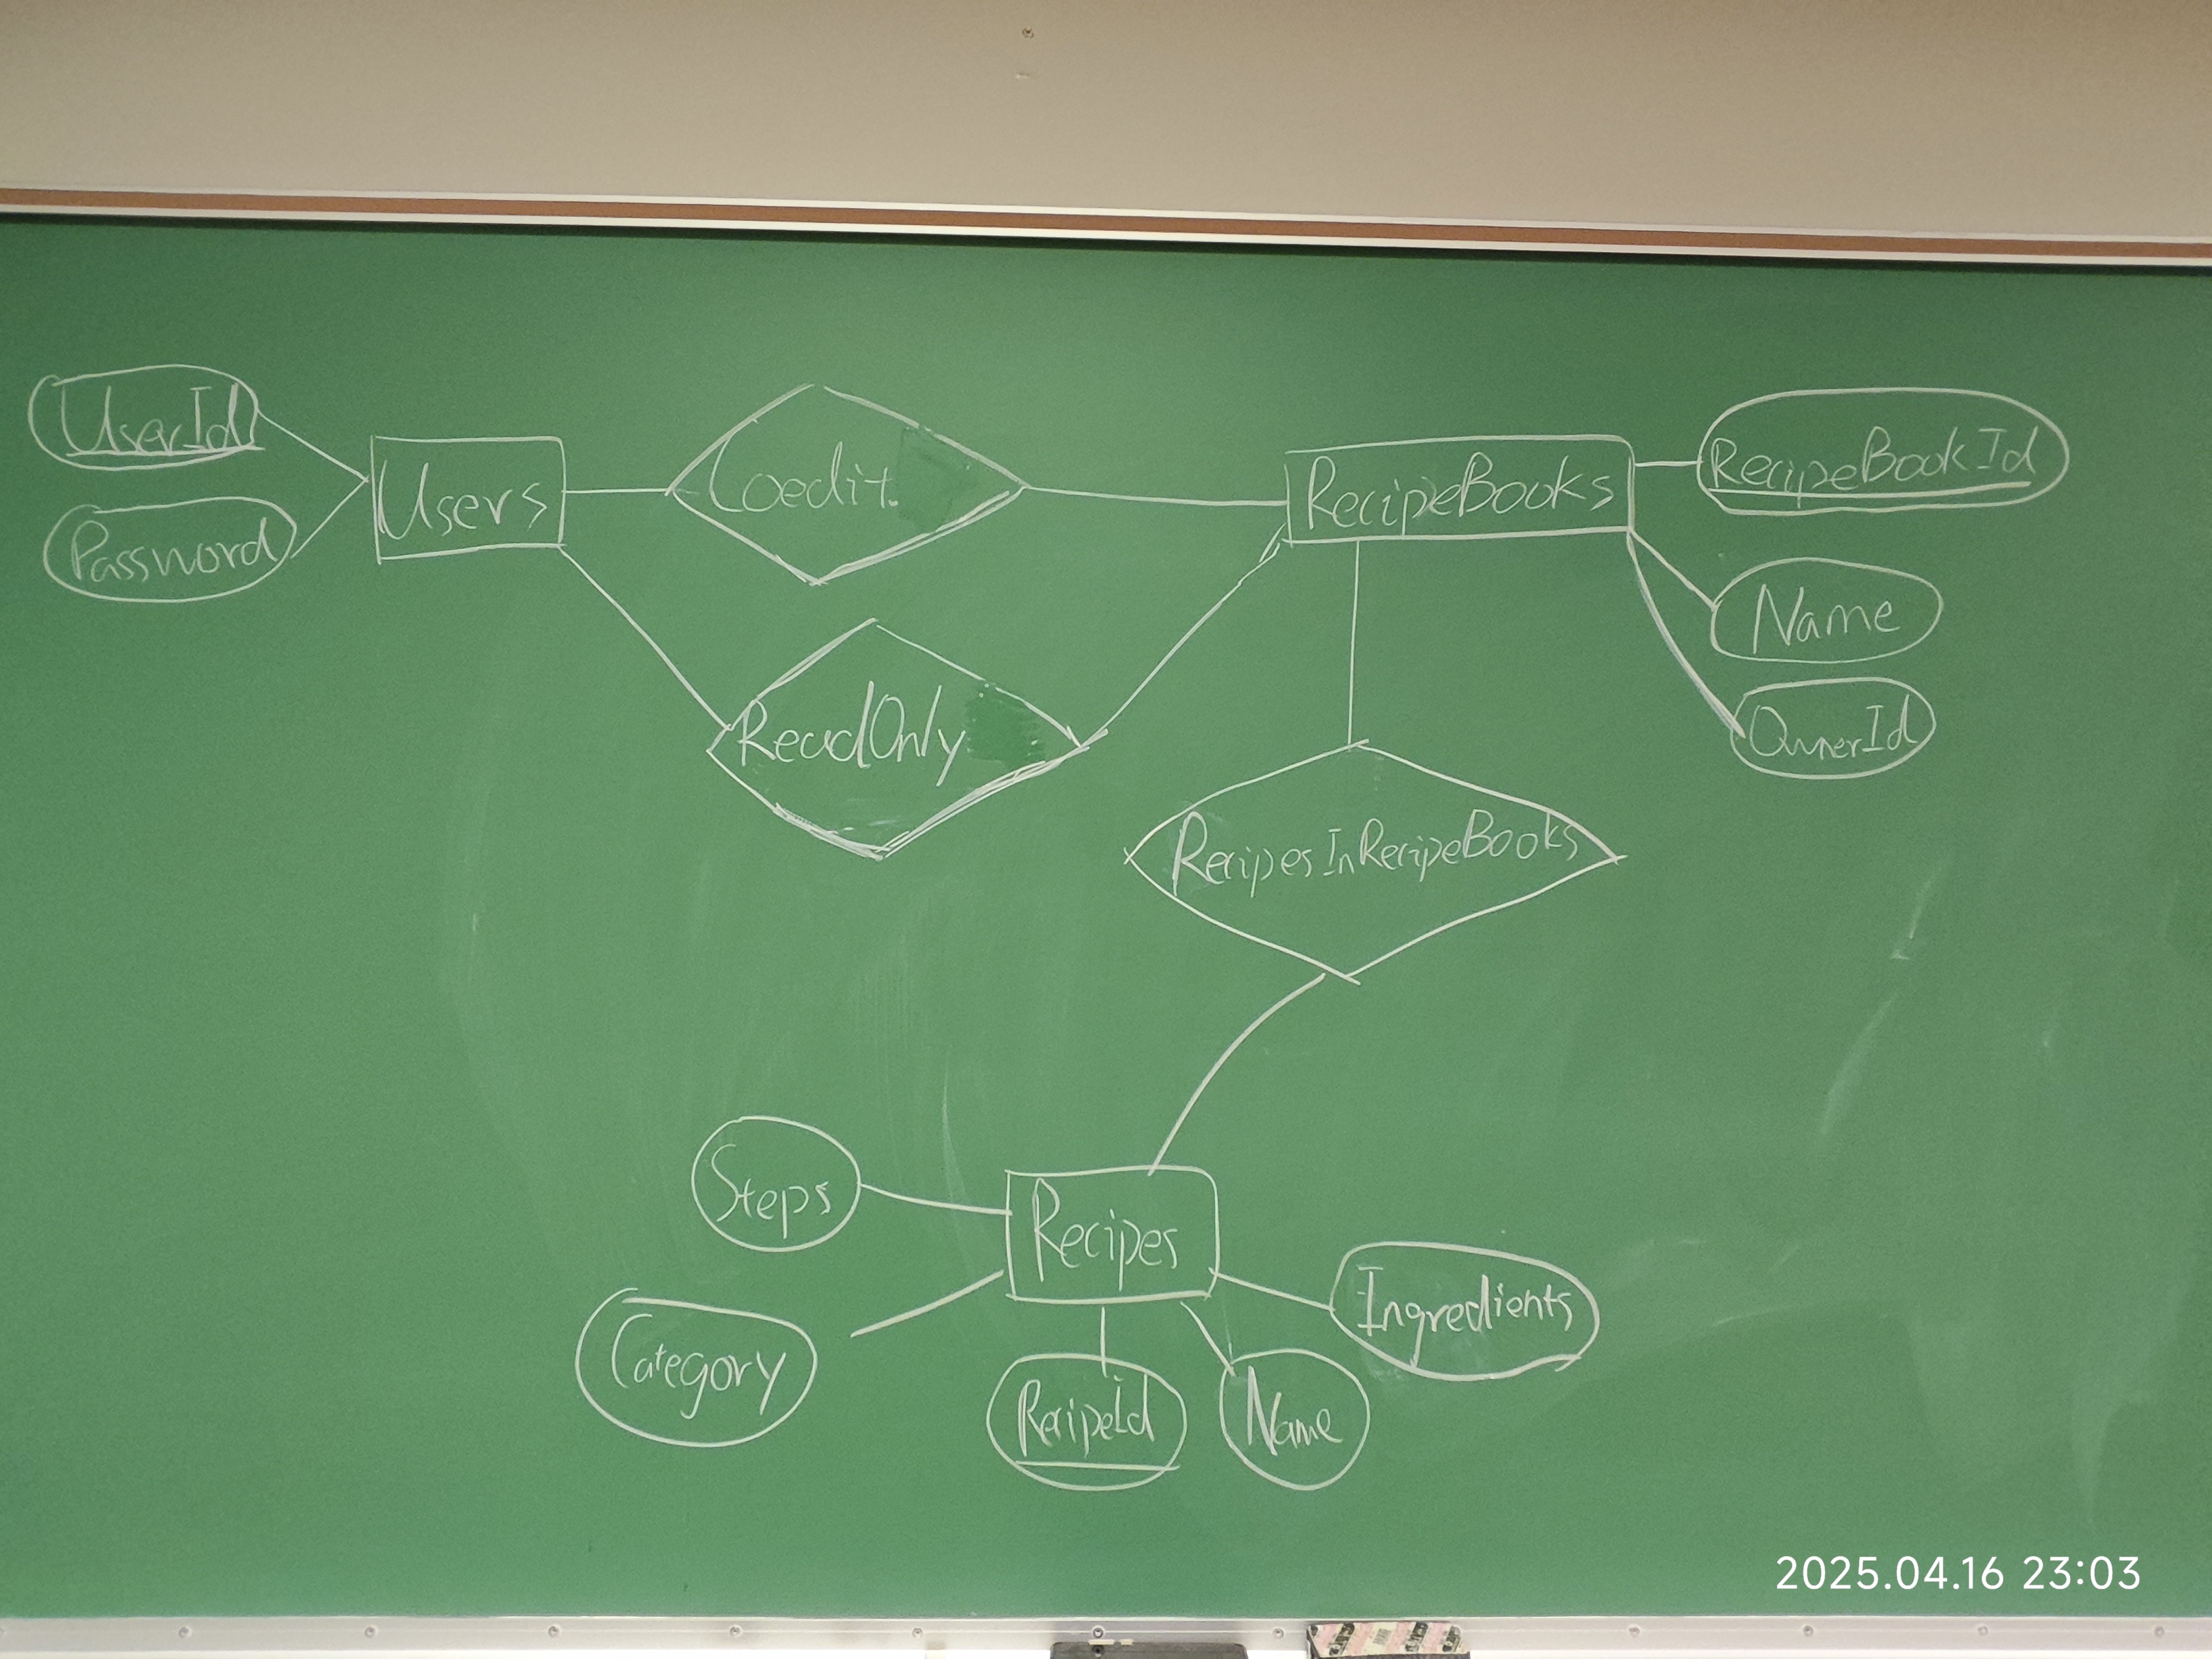 UserId
Password
Users
Coedit
ReadOnly
RecipeBooks
RecipeBookId
Name
OwnerId
RecipesInRecipeBooks
Steps
Recipes
Category
RecipeId
Name
Ingredients
2025.04.16 23:03